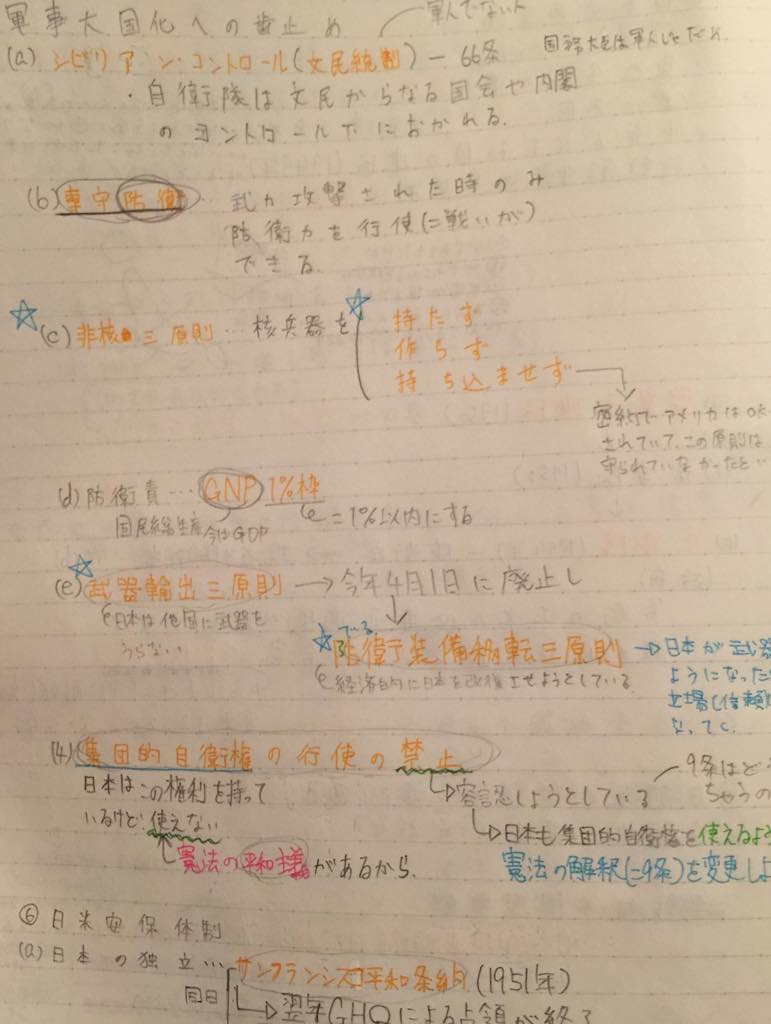 軍事大国化への歯止め
軍人でない人
(a) シビリアン・コントロール(文民統制) ― 66条
国務大臣は軍人じゃだめ
・自衛隊は文民からなる国会や内閣
のコントロール下におかれる.
(b) 専守防衛… 武力攻撃された時のみ
防衛力を行使(=戦いが)
できる.
(c) 非核三原則… 核兵器を
持たず
作らず
持ち込ませず
密約で アメリカは
されていて、この原則は
守られていなかったとい…
(d) 防衛費… GNP 1%枠
国民総生産 今はGDP
=1%以内にする
(e) 武器輸出三原則 → 今年4月1日に廃止し
日本は他国に武器を
うらない
防衛装備移転三原則
経済的に日本を させようとしている
→日本が武器
ようになった
立場(信頼
なってく.
(4) 集団的自衛権の行使の禁止
日本はこの権利を持って
いるけど 使えない
憲法の平和 があるから.
容認しようとしている
9条はど
ちゃうの
→日本も集団的自衛権を使えるよう
憲法の解釈(=9条)を変更しよ
⑥ 日米安保体制
(a) 日本の独立… サンフランシスコ平和条約 (1951年)
同日
→翌年GHQによる占領が終了